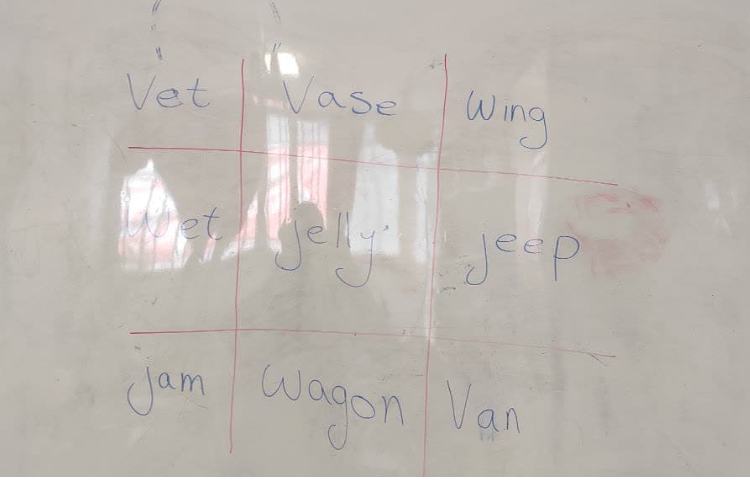 Vet Vase Wing
Wet jelly jeep
jam Wagon Van